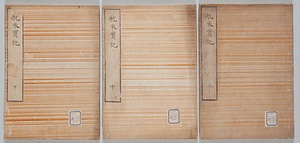 航米實記 上
航米實記 中
航米實記 下